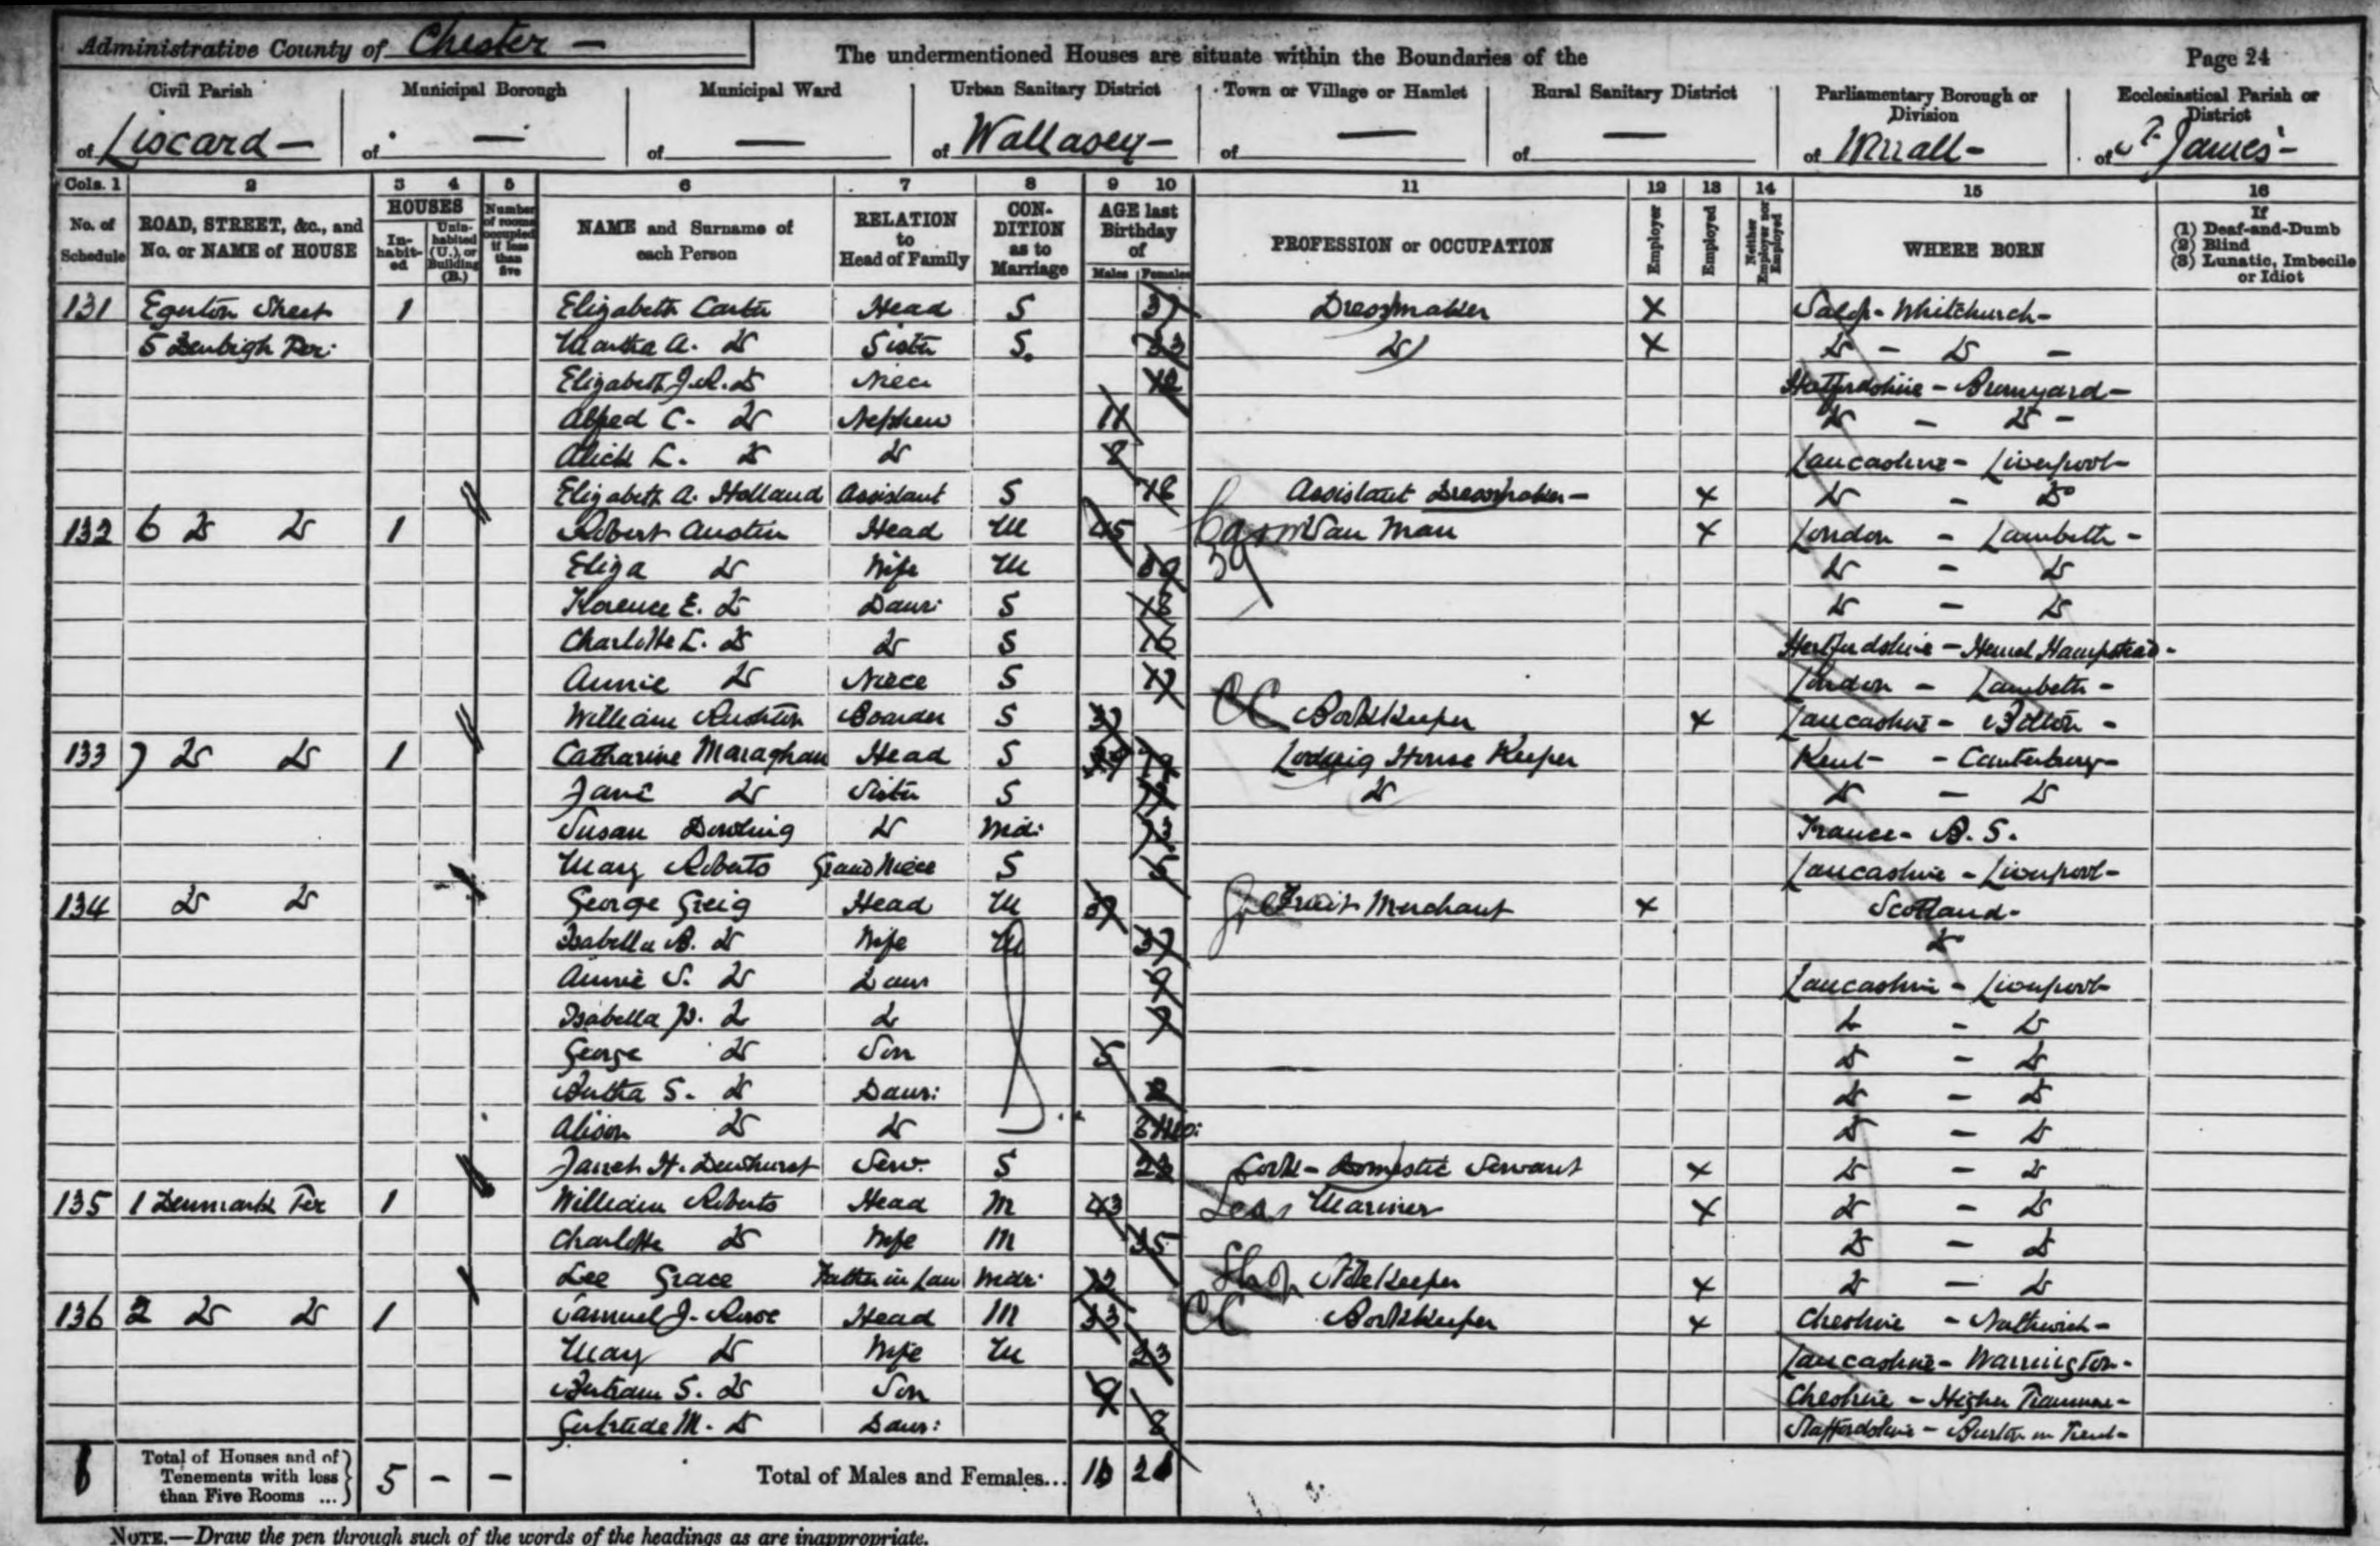 Administrative County of Chester —
The undermentioned Houses are situate within the Boundaries of the
Page 24
Civil Parish | Municipal Borough | Municipal Ward | Urban Sanitary District | Town or Village or Hamlet | Rural Sanitary District | Parliamentary Borough or Division | Ecclesiastical Parish or District
of Liscard — | of — | of — | of Wallasey — | of — | of — | of Wirrall - | of St James' -
Cols. 1 | 2 | 3 | 4 | 5 | 6 | 7 | 8 | 9 | 10 | 11 | 12 | 13 | 14 | 15 | 16
No. of Schedule | ROAD, STREET, &c., and No. or NAME of HOUSE | HOUSES In-habit-ed | Unin-habited (U.), or Building (B.) | Number of rooms occupied if less than five | NAME and Surname of each Person | RELATION to Head of Family | CON-DITION as to Marriage | AGE last Birthday of Males | Females | PROFESSION or OCCUPATION | Employer | Employed | Neither Employer nor Employed | WHERE BORN | If (1) Deaf-and-Dumb (2) Blind (3) Lunatic, Imbecile or Idiot
131 Egerton Street 1 Elizabeth Carter Head S 37 Dressmaker X Salop - Whitchurch -
5 Denbigh Ter: Martha A. Do Sister S. 33 Do X Do - Do -
Elizabeth J. Do Niece 12 Bromyard -
Alfred C. Do Nephew 11 Do - Do -
Alick L. Do Do 8 Lancashire - Liverpool -
Elizabeth A. Holland Assistant S 18 Assistant Dressmaker - X Do - Do
132 6 Do Do 1 Robert Austin Head M 45 Van Man X London - Lambeth -
Eliza Do Wife M 39 Do - Do
Florence E. Do Daur: S 18 Do - Do
Charlotte L. Do Do S 16 Hertfordshire - Hemel Hampstead -
Annie Do Niece S 17 London - Lambeth -
William Rushton Boarder S CC Bookkeeper X Lancashire - Bolton -
133 7 Do Do 1 Catharine Maraghan Head S 79 Lodging House Keeper Kent - Canterbury -
Jane Do Sister S Do Do - Do
Susan Dowling Do Wid: 73 France - B. S.
Mary Roberts Grand Niece S 5 Lancashire - Liverpool -
134 Do Do George Greig Head M Fruit Merchant X Scotland -
Isabella B. Do Wife M 37 Do
Annie S. Do Daur 9 Lancashire - Liverpool
Isabella Do Do 7 Do - Do
George Do Son 5 Do - Do
Bertha S. Do Daur: 2 Do - Do
Alison Do Do Mo: Do - Do
Janet H. Dewhurst Serv. S 22 Cook - Domestic Servant X Do - Do
135 1 Denmark Ter 1 William Roberts Head M 43 Mariner X Do - Do
Charlotte Do Wife M 35 Do - Do
Lee Grace Father in Law Widr: 72 Shop X Do - Do
136 2 Do Do 1 Samuel J. Rowe Head M 33 CC Bookkeeper X Cheshire - Nathwich -
Mary Do Wife M 33 Lancashire - Warrington -
Bertram S. Do Son 9 Cheshire - Higher Tranmere -
Gertrude M. Do Daur: 8 Staffordshire - Burton on Trent -
Total of Houses and of Tenements with less than Five Rooms ... 5 - - Total of Males and Females...
NOTE.—Draw the pen through such of the words of the headings as are inappropriate.